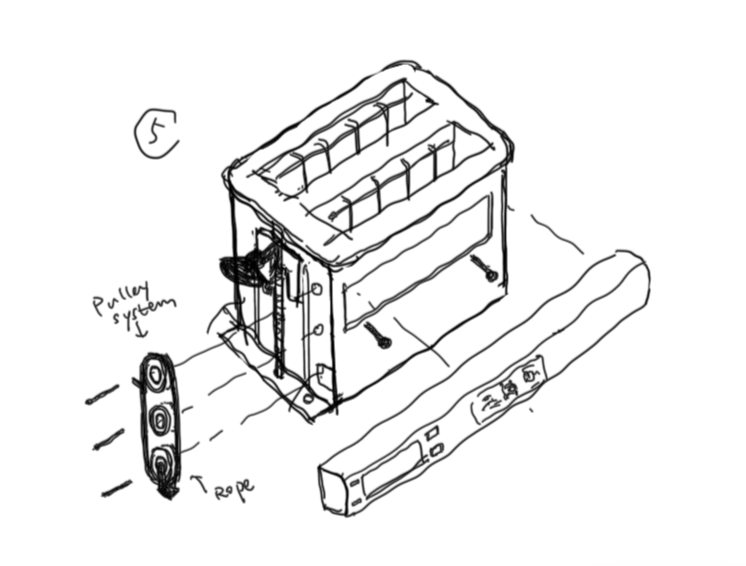 5
Pulley
system
Rope